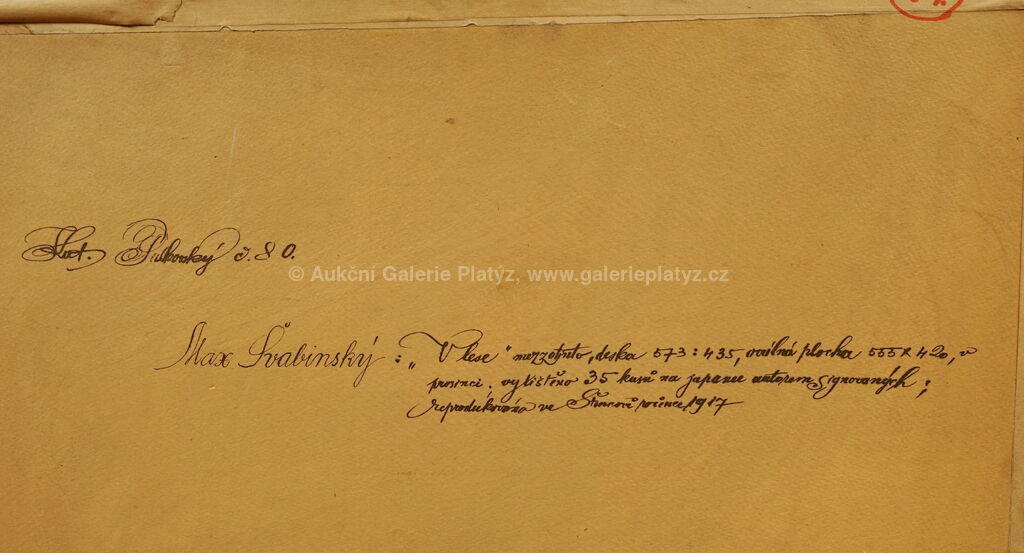 Kat. Palkovský č. 80.
© Aukční Galerie Platýz, www.galerieplatyz.cz
Max Švabinský : „V lese" mezzotinto, deska 573 : 435, oválná plocha 555 x 420, v
prosinci. vytištěno 35 kusů na japanu autorem signovaných ;
reprodukována ve 1917